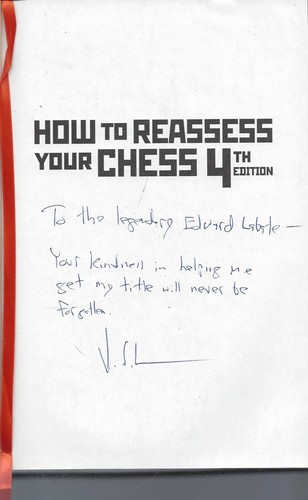 HOW TO REASSESS
YOUR CHESS 4TH
EDITION
To the legendary Eduard Labate —
Your kindness in helping me
get my title will never be
forgotten.
J. S.